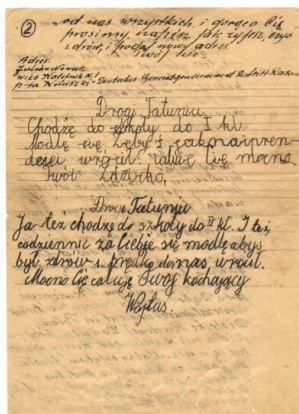 2
od nas wszystkich i gorąco Cię
prosimy, napisz jak żyjesz, czyś
zdrów, i podaj nowy adres
Twój
Adres:
wieś
p-ta Koluszki - Deutsche
Drogi Tatuniu
Chodzę do szkoły do I kl.
Modlę się, żebyś jaknajpren-
dzej wrócił. całuję Cię
Twój
Drogi Tatuniu
Ja też chodzę do szkoły do II kl. I też
codziennie za Ciebie się modlę abyś
był zdrów i prędko do nas wrócił.
Mocno Cię całuję Twój kochający
Wojtuś.